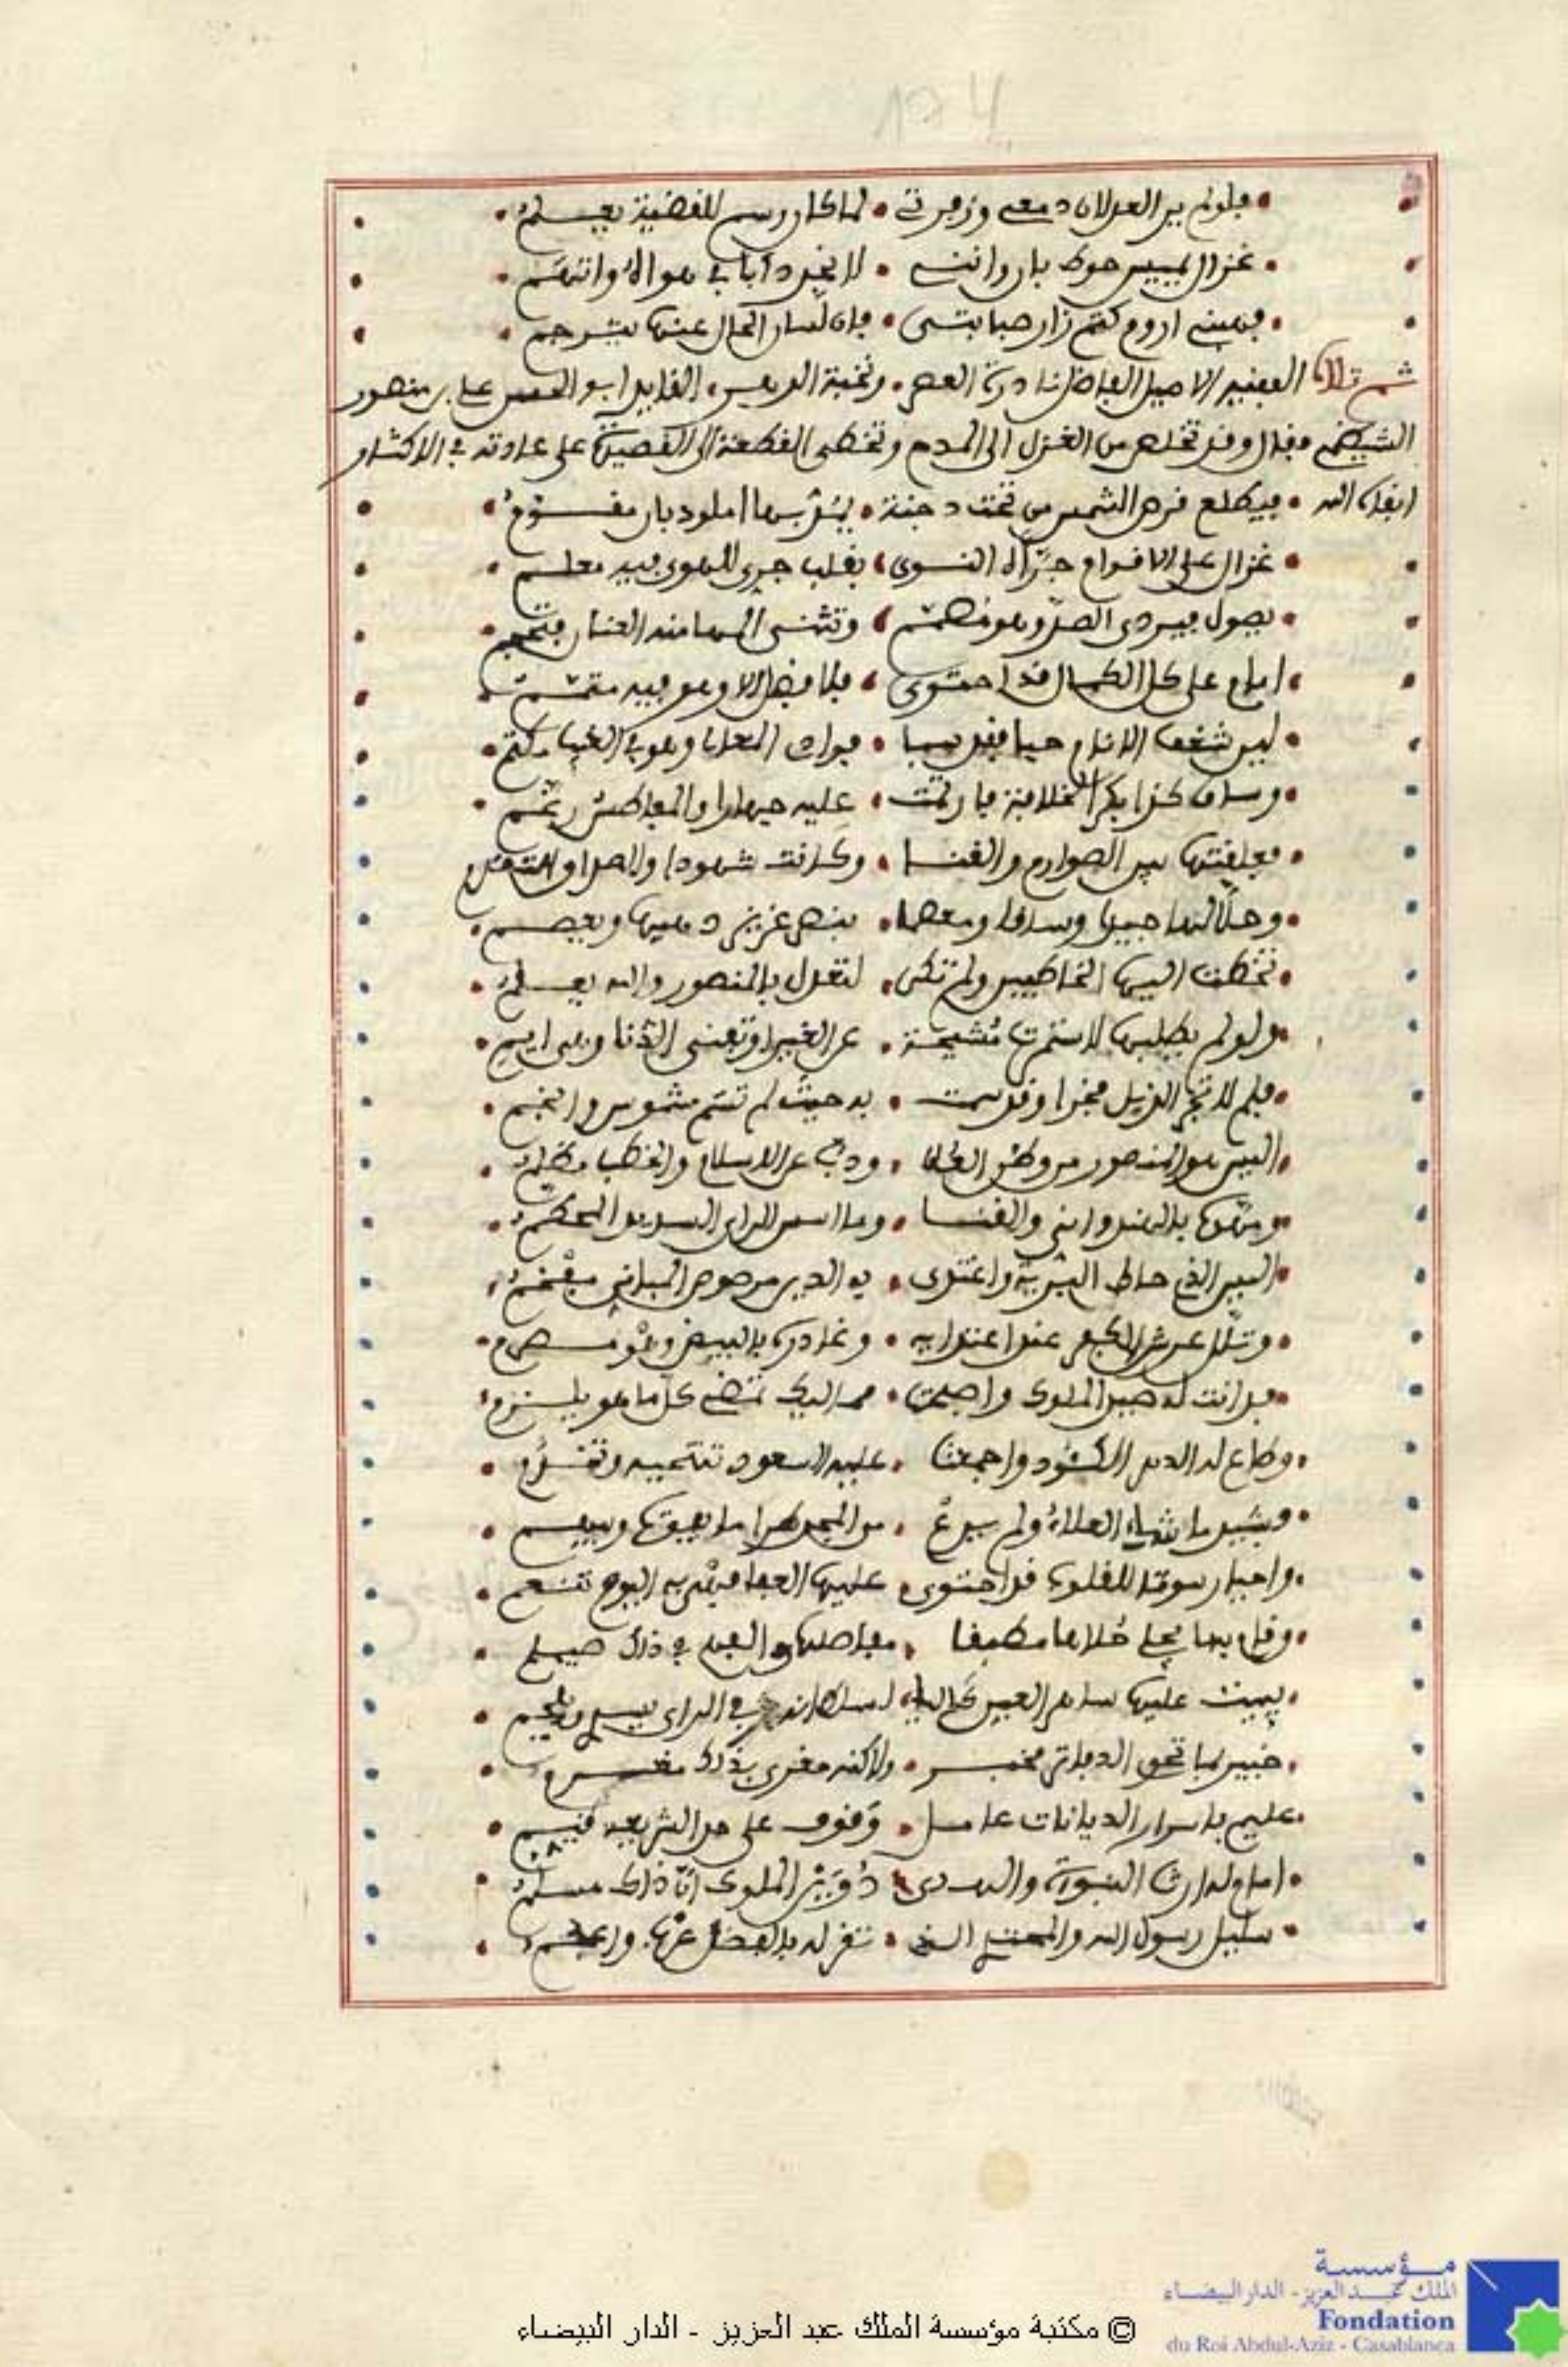 فلولم بين العدلان دمعي وزفرتي • لما كان رسم للقضية يعلم
غزال يميس حوط بان وانثنى • لا نجد دابا في هواه واتهم
فهبني اروم كتم نار صبابتي • فان لسان الحال عنها يترجم
ثم تلاه الفقيه الاصيل الفاضل نادرة العصر • ونخبة الدهر • القايد ابو الحسن علي بن منصور
الشيظمي فقال وقد تخلص من الغزل الى المدح وتخطى القطعة الى القصيدة على عادته في الاكثار
ابقاه الله • فيطلع قرص الشمس من تحت دجنة • يقر بها املود بان مقوم
غزال على الاقدام جراه النوى • بقلب جرى للهوى فيه معلم
يصول فيردي الصد وهو • وتثنى المها منه العنان فتحجم
امام على كل الكمال قد احتوى • فلا فضل الا وهو فيه متمم
لين شغف الانام حبا فقد سبا • فؤاد العلا وهو في الغيب مكتم
وساق كذا بكر الخلافة فارتمت • عليه حيارا والمعاطس رغم
فعاقدتها بين الصوارم والقنا • وكانت شهودا والاصداق التقدم
وحلا لها جيدا وساقا ومعصما • بنصر عزيز دملجها ويعصم
تخطت اليها الخاطبين ولم تكن • لتعدل بالمنصور والله يعلم
ولو لم يطلبها لاستمرت مشيحة • عن الغير او تفنى الدنا وهي ايم
فلم لا تجر الذيل فخرا وقد سمت • به حيث لم تسم شموس وانجم
اليس هو المنصور من وطد العلا • وذب عن الاسلام والخطب مظلم
ومهدها بالهندواني والقنا • وما اسس الراي السديد المحكم
اليس الذي حاط البرية واغتدى • به الدين مرصوص المباني مفخم
وثلل عرش الكفر عند اعتدايه • وغادره بالبيض وهو مصرم
فدانت له صيد الملوك واصبحت • مماليك تقضي كل ما هو يلزم
وطاع له الدهر الكنود واجمعت • عليه السعود تنتحيه وتقدم
وشيد ما شاء العلاء ولم يدع • من المجد صرا ما يفوقها ويسم
واحيا رسوما للعلوم قد احتوى • عليها العفا فهي به اليوم تنعم
وقام بها يجلي ظلامها مطبقا • مفاصلها والفهم في ذاك صيلم
يبيت عليها ساهر العين طالبا • لسلطانه في الراي يسدي ويلحم
خبير بما تحوي الدفاتر مخبر • ولاكنه مغرى بذاك مغرم
عليم باسرار الديانات عامل • وقوف على حد الشريعة قيم
امام له ارث النبوة والهدى • دؤ بين الملوك انا ذاك مسلم
سليل رسول الله والمجتبى الذي • تقر له بالفضل عرب واعجم
© مكتبة مؤسسة الملك عبد العزيز - الدار البيضاء
مؤسسة
الملك عبد العزيز - الدار البيضاء
Fondation
du Roi Abdul-Aziz - Casablanca